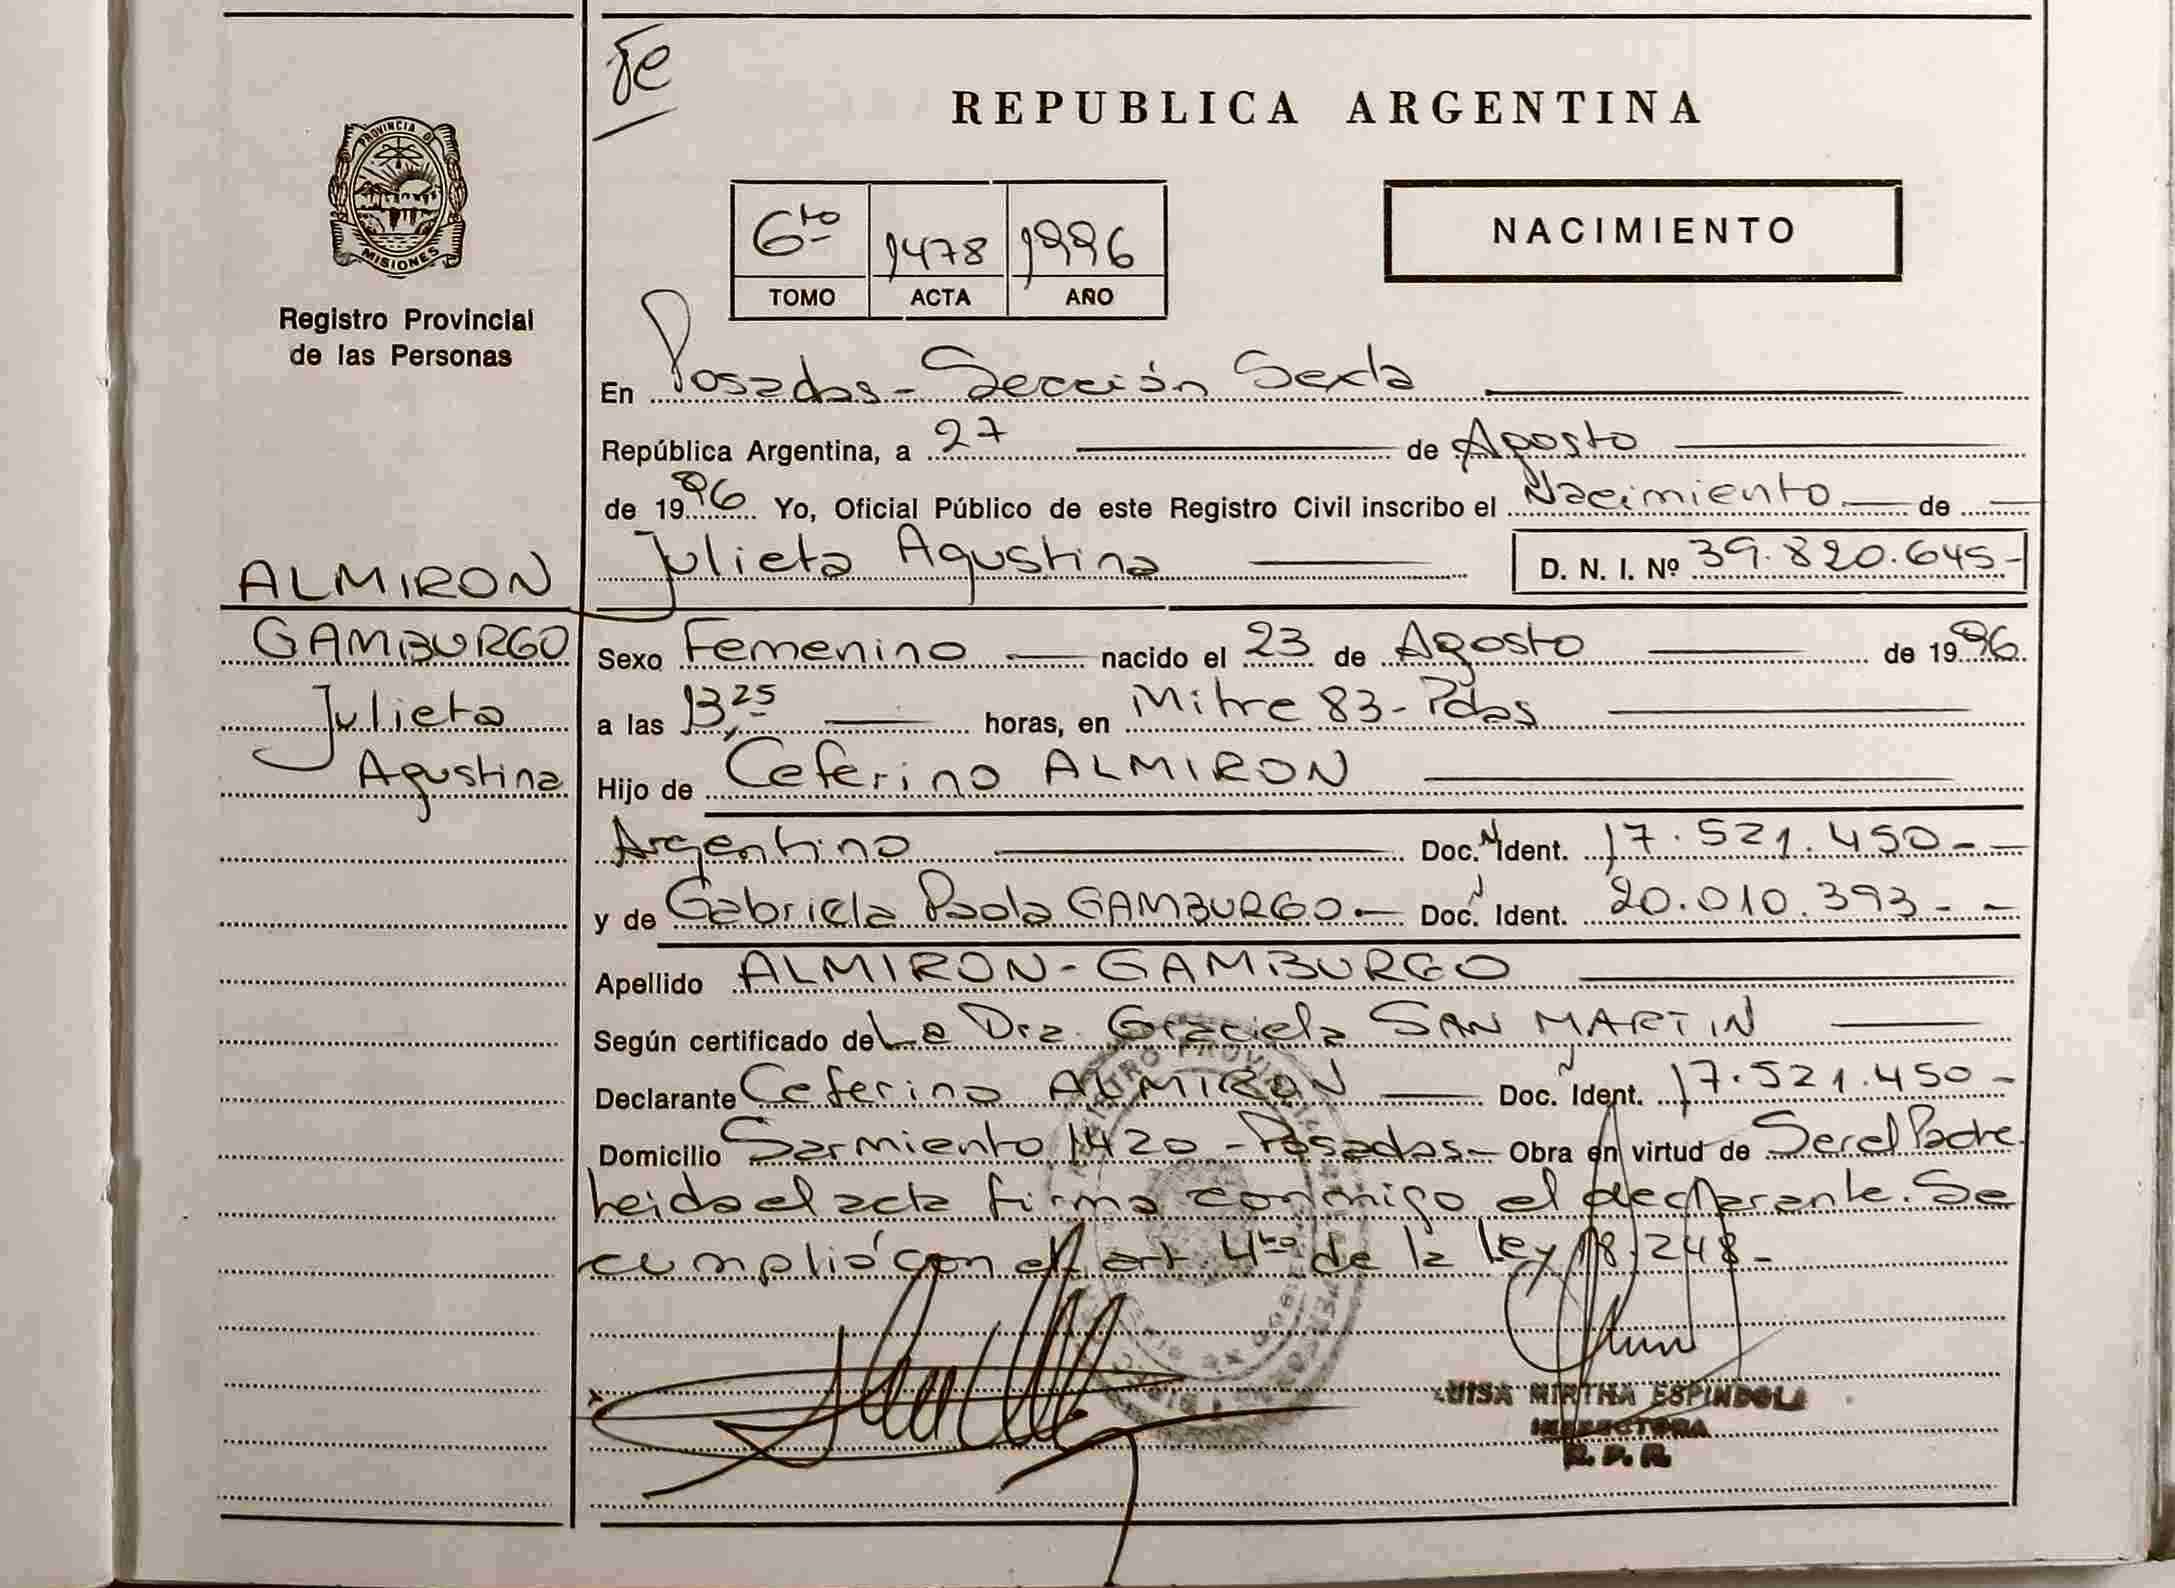 Fe
REPUBLICA ARGENTINA
PROVINCIA DE
MISIONES
Registro Provincial
de las Personas
6to 1478 1996
TOMO ACTA AÑO
NACIMIENTO
En Posadas - Sección Sexta
República Argentina, a 27 de Agosto
de 1996 Yo, Oficial Público de este Registro Civil inscribo el Nacimiento de
Julieta Agustina D. N. I. Nº 39.820.645-
ALMIRON
GAMBURGO
Julieta
Agustina
Sexo Femenino nacido el 23 de Agosto de 1996
a las 13,25 horas, en Mitre 83 - Pdas
Hijo de Ceferino ALMIRON
Argentino Doc. N Ident. 17.521.450 -
y de Gabriela Paola GAMBURGO.- Doc. N Ident. 20.010.393 - -
Apellido ALMIRON - GAMBURGO
Según certificado de La Dra. Graciela SAN MARTIN
Declarante Ceferino ALMIRON Doc. N Ident. 17.521.450 -
Domicilio Sarmiento 1420 - Posadas - Obra en virtud de Ser el Padre
Leida el acta firma conmigo el declarante. Se
cumplió con el art. 4to de la Ley 18.248 -
LUISA MIRTHA ESPINDOLA
INSPECTORA
R. P. P.